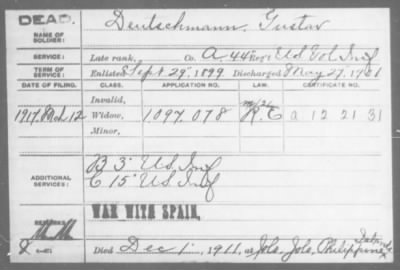 DEAD.
NAME OF SOLDIER: Deutschmann, Gustav
SERVICE: Late rank, Co. A, 44" Reg't U.S. Vol. Inf
TERM OF SERVICE: Enlisted Sept 29", 1899 Discharged May 27, 1901
DATE OF FILING. CLASS. APPLICATION NO. LAW. CERTIFICATE NO.
Invalid,
1917 Mch 12 Widow, 1097.078 R.E a 12 21 31
Minor,
ADDITIONAL SERVICES: B 3" U.S. Inf
C 15" U.S. Inf
WAR WITH SPAIN,
Died Dec 1", 1911, at Jolo, Jolo, Philippine Islands